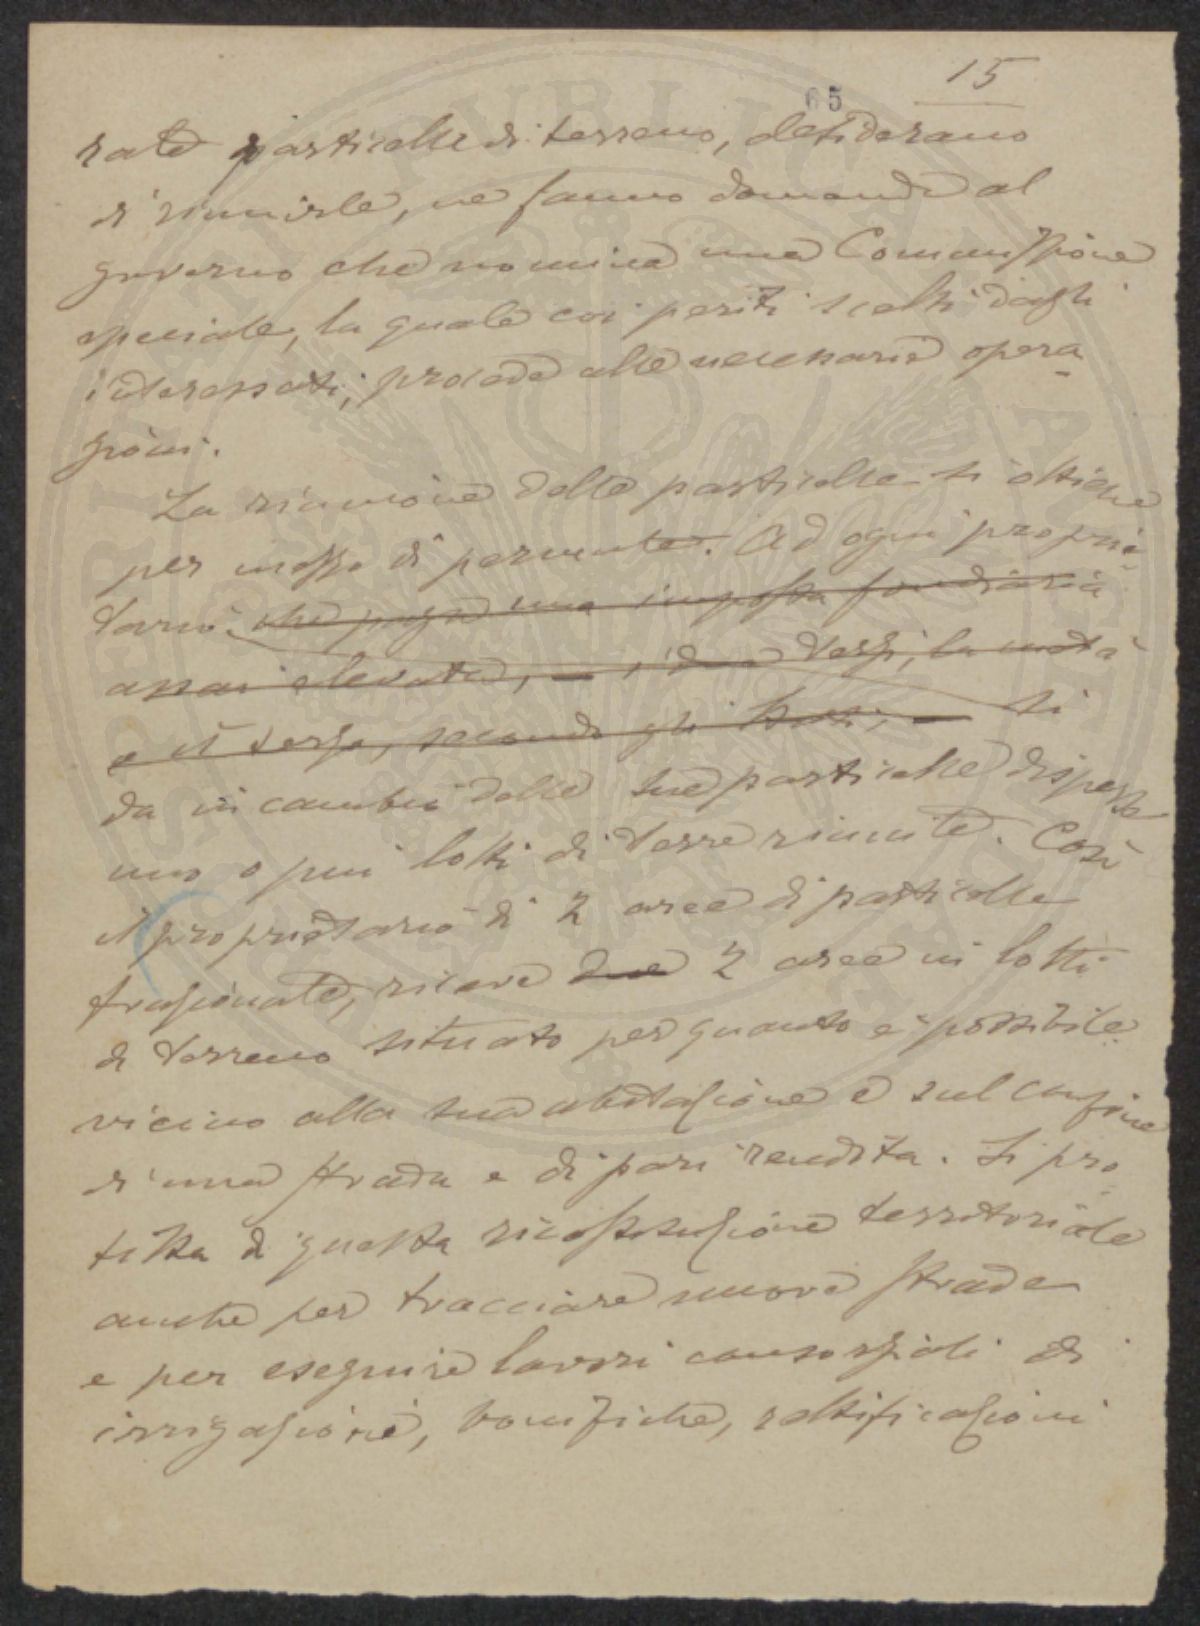 15
65
rate particelle di terreno, desiderano
di riunirle, ne fanno domanda al
governo che nomina una Commissione
speciale, la quale coi periti scelti dagli
interessati, procede alle necessarie opera-
zioni.
La riunione delle particelle si ottiene
per mezzo di permute. Ad ogni proprie-
tario che paga una imposta fondiaria
assai elevata, i due terzi, la metà
o il terzo, secondo gli si
da in cambio delle sue particelle disperse
uno o più lotti di terre riunite. Così
il proprietario di 2 aree di particelle
frazionate, riceve due 2 aree in lotti
di terreno situato per quanto è possibile
vicino alla sua abitazione e sul confine
di una strada e di pari rendita. Si pro
fitta di questa ricostituzione territoriale
anche per tracciare nuove strade
e per eseguire lavori consorziali di
irrigazione, bonifiche, rettificazioni